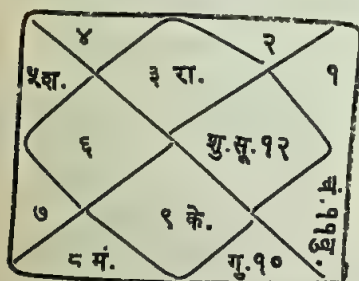 ४ २
५श. ३ रा. १
६ शु.सू.१२
७ ९ के. चं.११बु.
८ मं. गु.१०